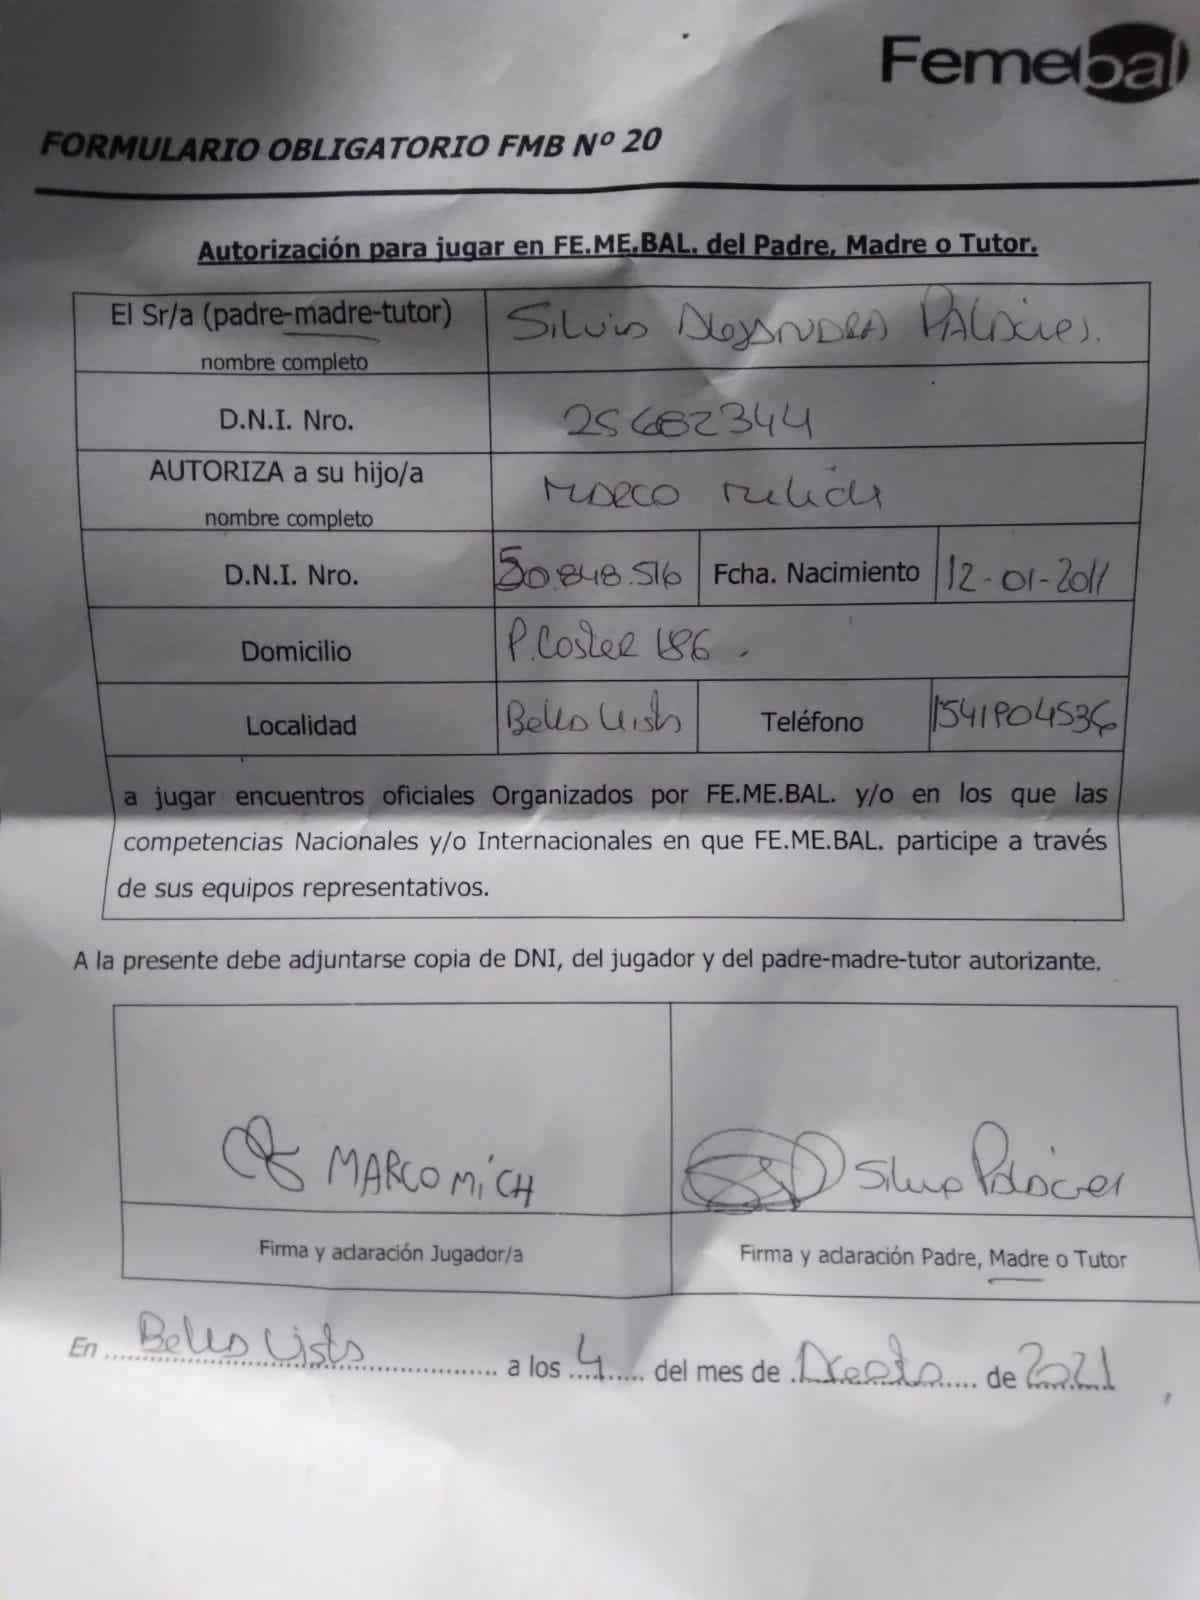 Femebal
FORMULARIO OBLIGATORIO FMB Nº 20
Autorización para jugar en FE.ME.BAL. del Padre, Madre o Tutor.
El Sr/a (padre-madre-tutor) Silvia Alejandra Palacios.
nombre completo
D.N.I. Nro. 25682344
AUTORIZA a su hijo/a Marco
nombre completo
D.N.I. Nro. 50.848.516 Fcha. Nacimiento 12-01-2011
Domicilio P. Coster 186.
Localidad Bella Vista Teléfono 1541904536
a jugar encuentros oficiales Organizados por FE.ME.BAL. y/o en los que las
competencias Nacionales y/o Internacionales en que FE.ME.BAL. participe a través
de sus equipos representativos.
A la presente debe adjuntarse copia de DNI, del jugador y del padre-madre-tutor autorizante.
MARCO MiCH Silvia Palacios
Firma y aclaración Jugador/a Firma y aclaración Padre, Madre o Tutor
En Bella Vista a los 4 del mes de Agosto de 2021